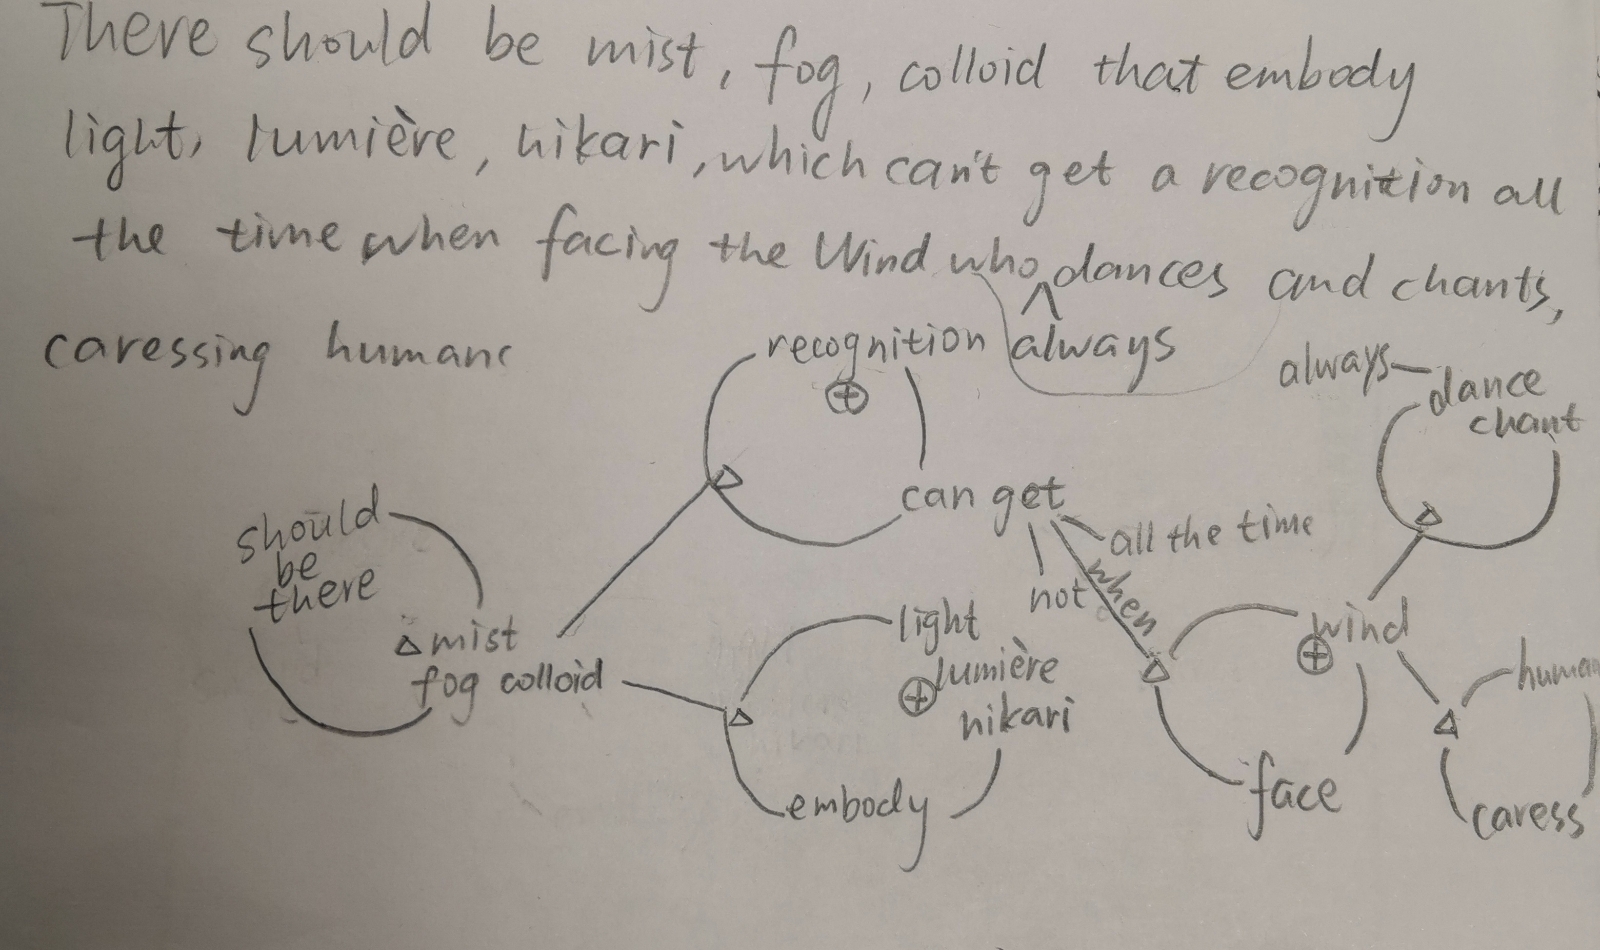 There should be mist, fog, colloid that embody
light, lumière, hikari, which can't get a recognition all
the time when facing the Wind who dances and chants,
always
caressing humans
recognition
⊕
can get
all the time
not
when
always
dance
chant
should
be
there
mist
fog colloid
light
lumière
⊕
hikari
embody
wind
⊕
face
human
caress